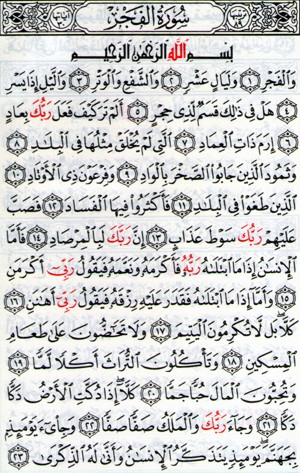 سُورَةُ الفَجْرِ
بِسْمِ اللَّهِ الرَّحْمَٰنِ الرَّحِيمِ
وَالْفَجْرِ ١ وَلَيَالٍ عَشْرٍ ٢ وَالشَّفْعِ وَالْوَتْرِ ٣ وَاللَّيْلِ إِذَا يَسْرِ
٤ هَلْ فِي ذَٰلِكَ قَسَمٌ لِّذِي حِجْرٍ ٥ أَلَمْ تَرَ كَيْفَ فَعَلَ رَبُّكَ بِعَادٍ
٦ إِرَمَ ذَاتِ الْعِمَادِ ٧ الَّتِي لَمْ يُخْلَقْ مِثْلُهَا فِي الْبِلَادِ ٨
وَثَمُودَ الَّذِينَ جَابُوا الصَّخْرَ بِالْوَادِ ٩ وَفِرْعَوْنَ ذِي الْأَوْتَادِ ١٠
الَّذِينَ طَغَوْا فِي الْبِلَادِ ١١ فَأَكْثَرُوا فِيهَا الْفَسَادَ ١٢ فَصَبَّ
عَلَيْهِمْ رَبُّكَ سَوْطَ عَذَابٍ ١٣ إِنَّ رَبَّكَ لَبِالْمِرْصَادِ ١٤ فَأَمَّا
الْإِنسَانُ إِذَا مَا ابْتَلَاهُ رَبُّهُ فَأَكْرَمَهُ وَنَعَّمَهُ فَيَقُولُ رَبِّي أَكْرَمَنِ
١٥ وَأَمَّا إِذَا مَا ابْتَلَاهُ فَقَدَرَ عَلَيْهِ رِزْقَهُ فَيَقُولُ رَبِّي أَهَانَنِ ١٦
كَلَّا بَل لَّا تُكْرِمُونَ الْيَتِيمَ ١٧ وَلَا تَحَاضُّونَ عَلَىٰ طَعَامِ
الْمِسْكِينِ ١٨ وَتَأْكُلُونَ التُّرَاثَ أَكْلًا لَّمًّا ١٩
وَتُحِبُّونَ الْمَالَ حُبًّا جَمًّا ٢٠ كَلَّا إِذَا دُكَّتِ الْأَرْضُ دَكًّا
دَكًّا ٢١ وَجَاءَ رَبُّكَ وَالْمَلَكُ صَفًّا صَفًّا ٢٢ وَجِيءَ يَوْمَئِذٍ
بِجَهَنَّمَ يَوْمَئِذٍ يَتَذَكَّرُ الْإِنسَانُ وَأَنَّىٰ لَهُ الذِّكْرَىٰ ٢٣